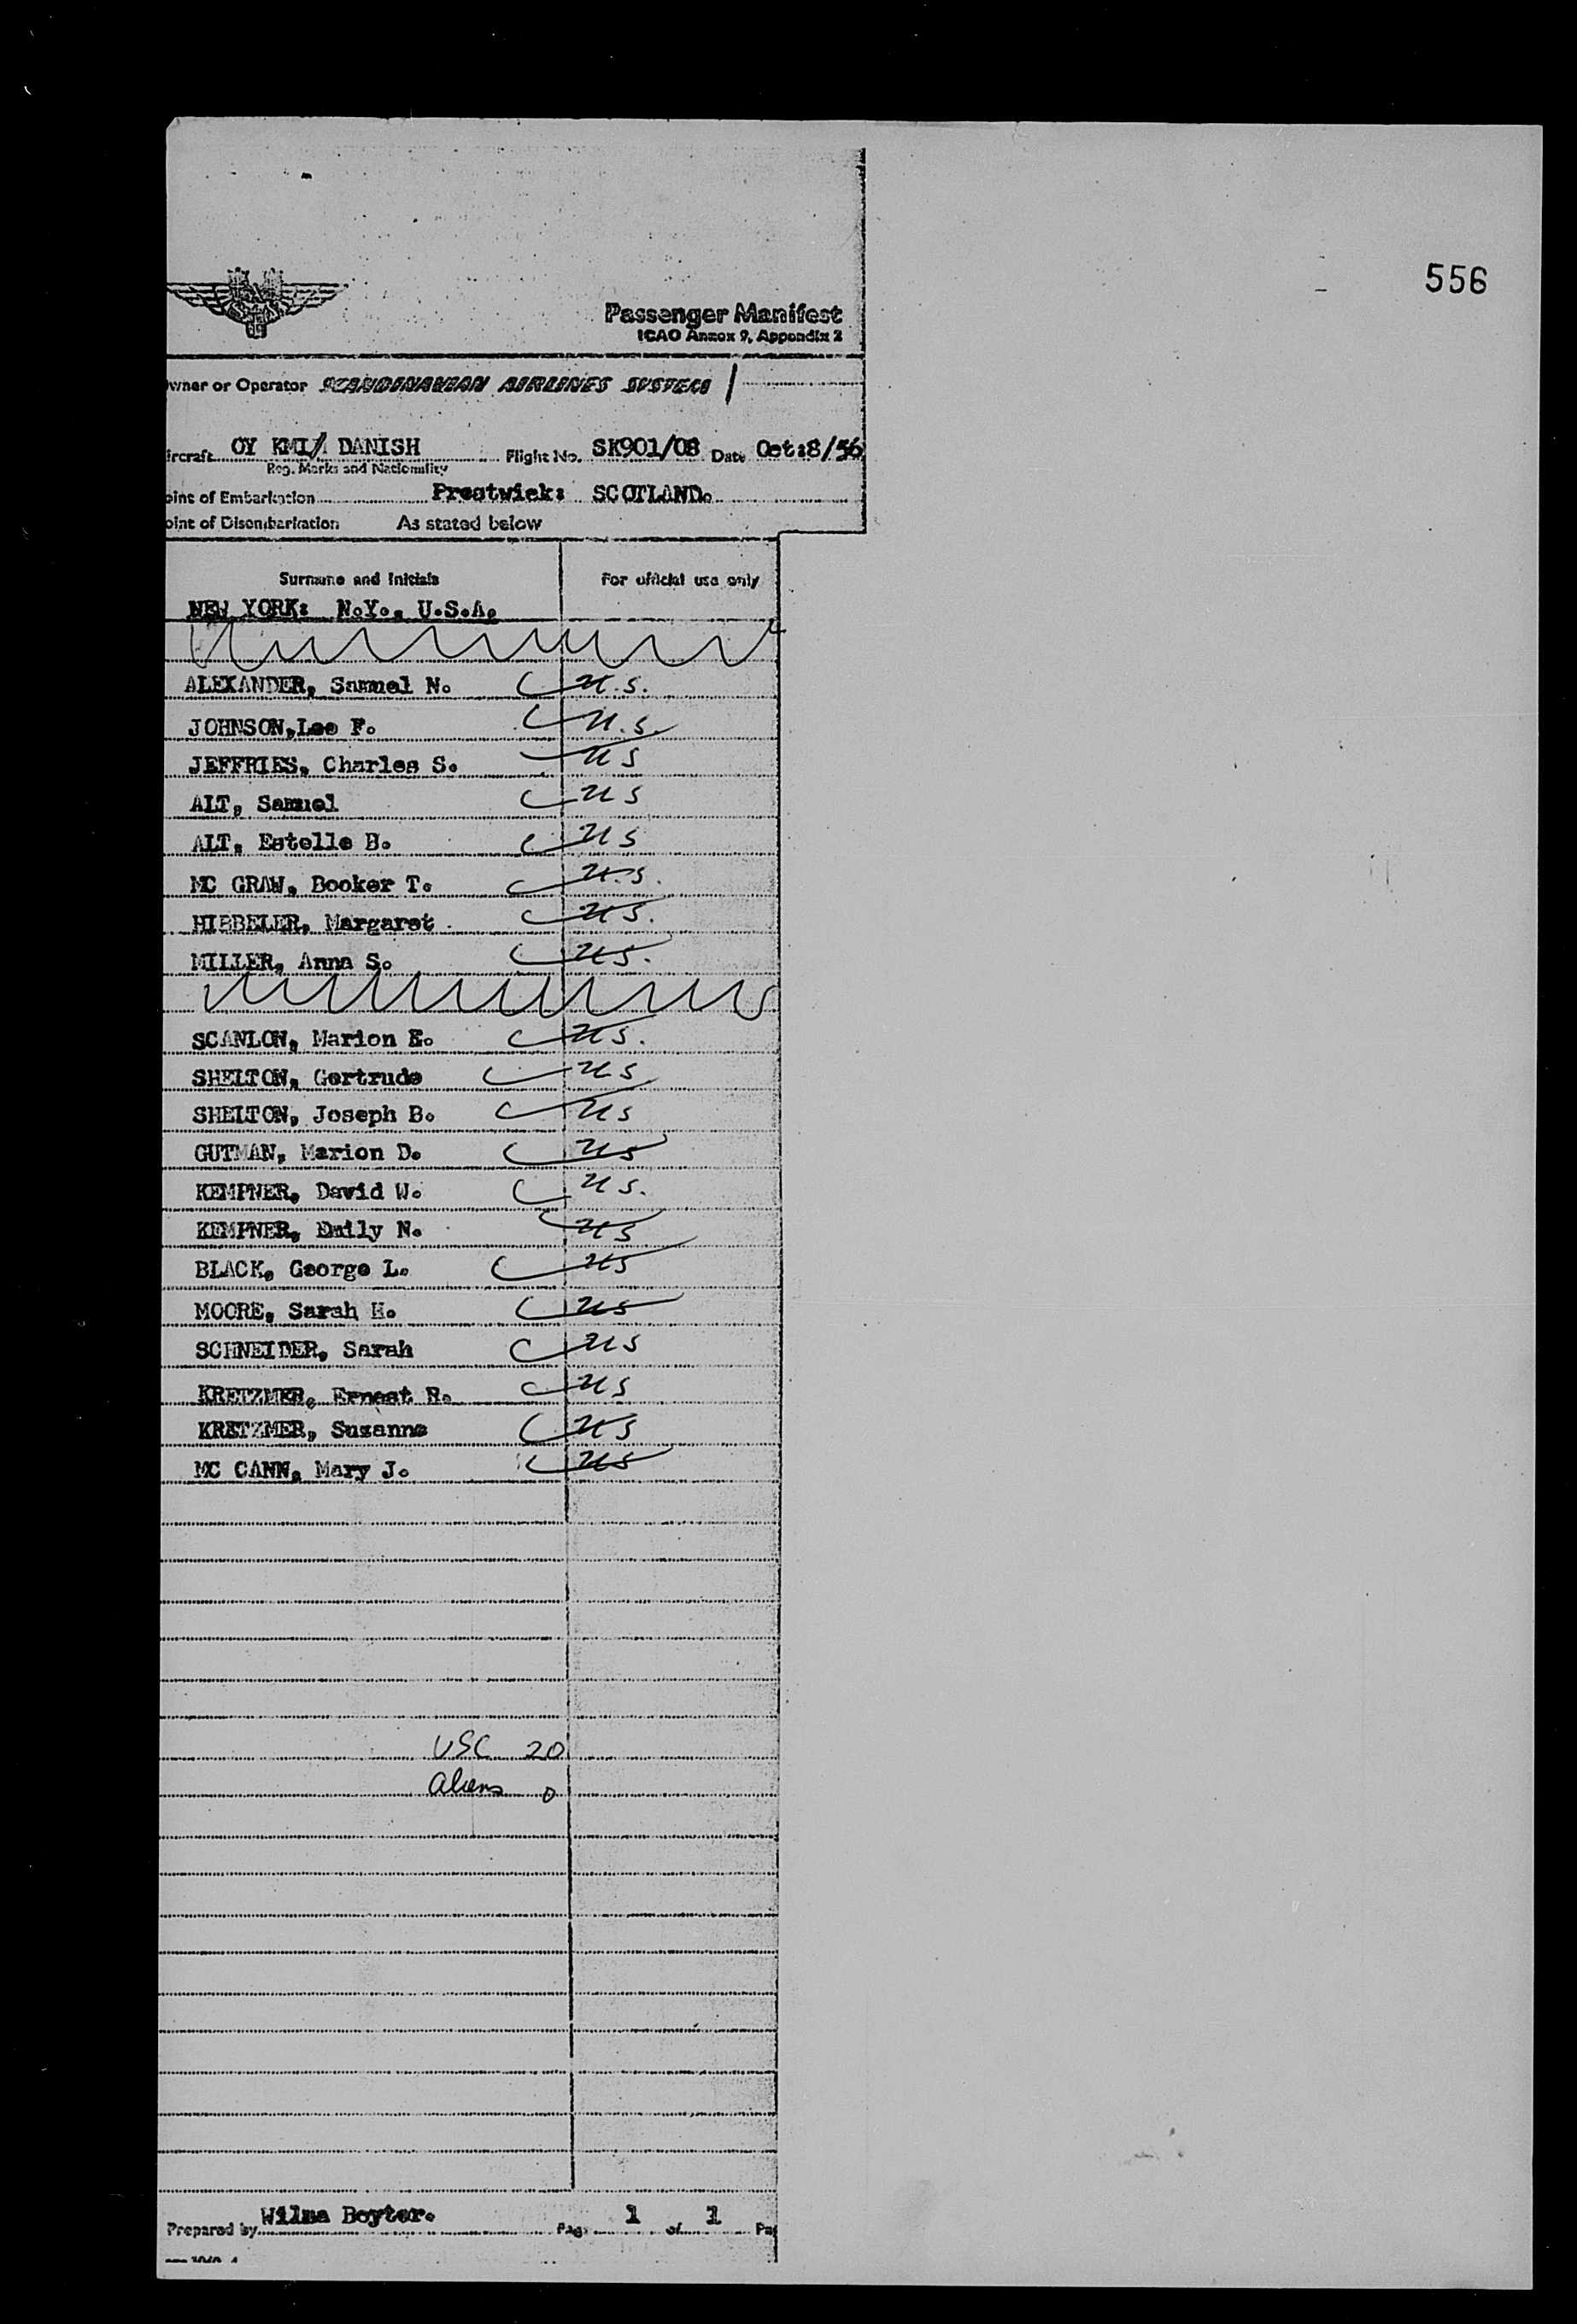 556
SAS
Passenger Manifest
ICAO Annex 9, Appendix 2
wner or Operator SCANDINAVIAN AIRLINES SYSTEM
ircraft OY KMI DANISH Flight No. SK901/08 Date Oct:8/56
Reg. Marks and Nationality
oint of Embarkation Prestwick: SCOTLAND.
oint of Disembarkation As stated below
Surname and Initials For official use only
NEW YORK: N.Y., U.S.A.
ALEXANDER, Samuel N. U.S.
JOHNSON,Lee F. U.S.
JEFFRIES, Charles S. US
ALT, Samuel US
ALT, Estelle B. US
MC GRAW, Booker T. U.S.
HIBBELER, Margaret US.
MILLER, Anna S. US.
SCANLON, Marion E. US.
SHELTON, Gertrude US
SHELTON, Joseph B. US
GUTMAN, Marion D. US
KEMPNER, David W. US.
KEMPNER, Emily N. US
BLACK, George L. US
MOORE, Sarah H. US
SCHNEIDER, Sarah US
KRETZMER, Ernest R. US
KRETZMER, Suzanne US
MC CANN, Mary J. US
USC 20
Aliens 0
Prepared by Wilma Boyter. Page 1 of 1 Pa